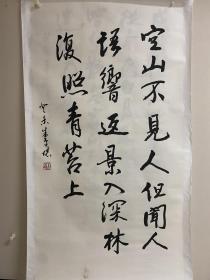 空山不見人但聞人
語響返景入深林
復照青苔上
癸未